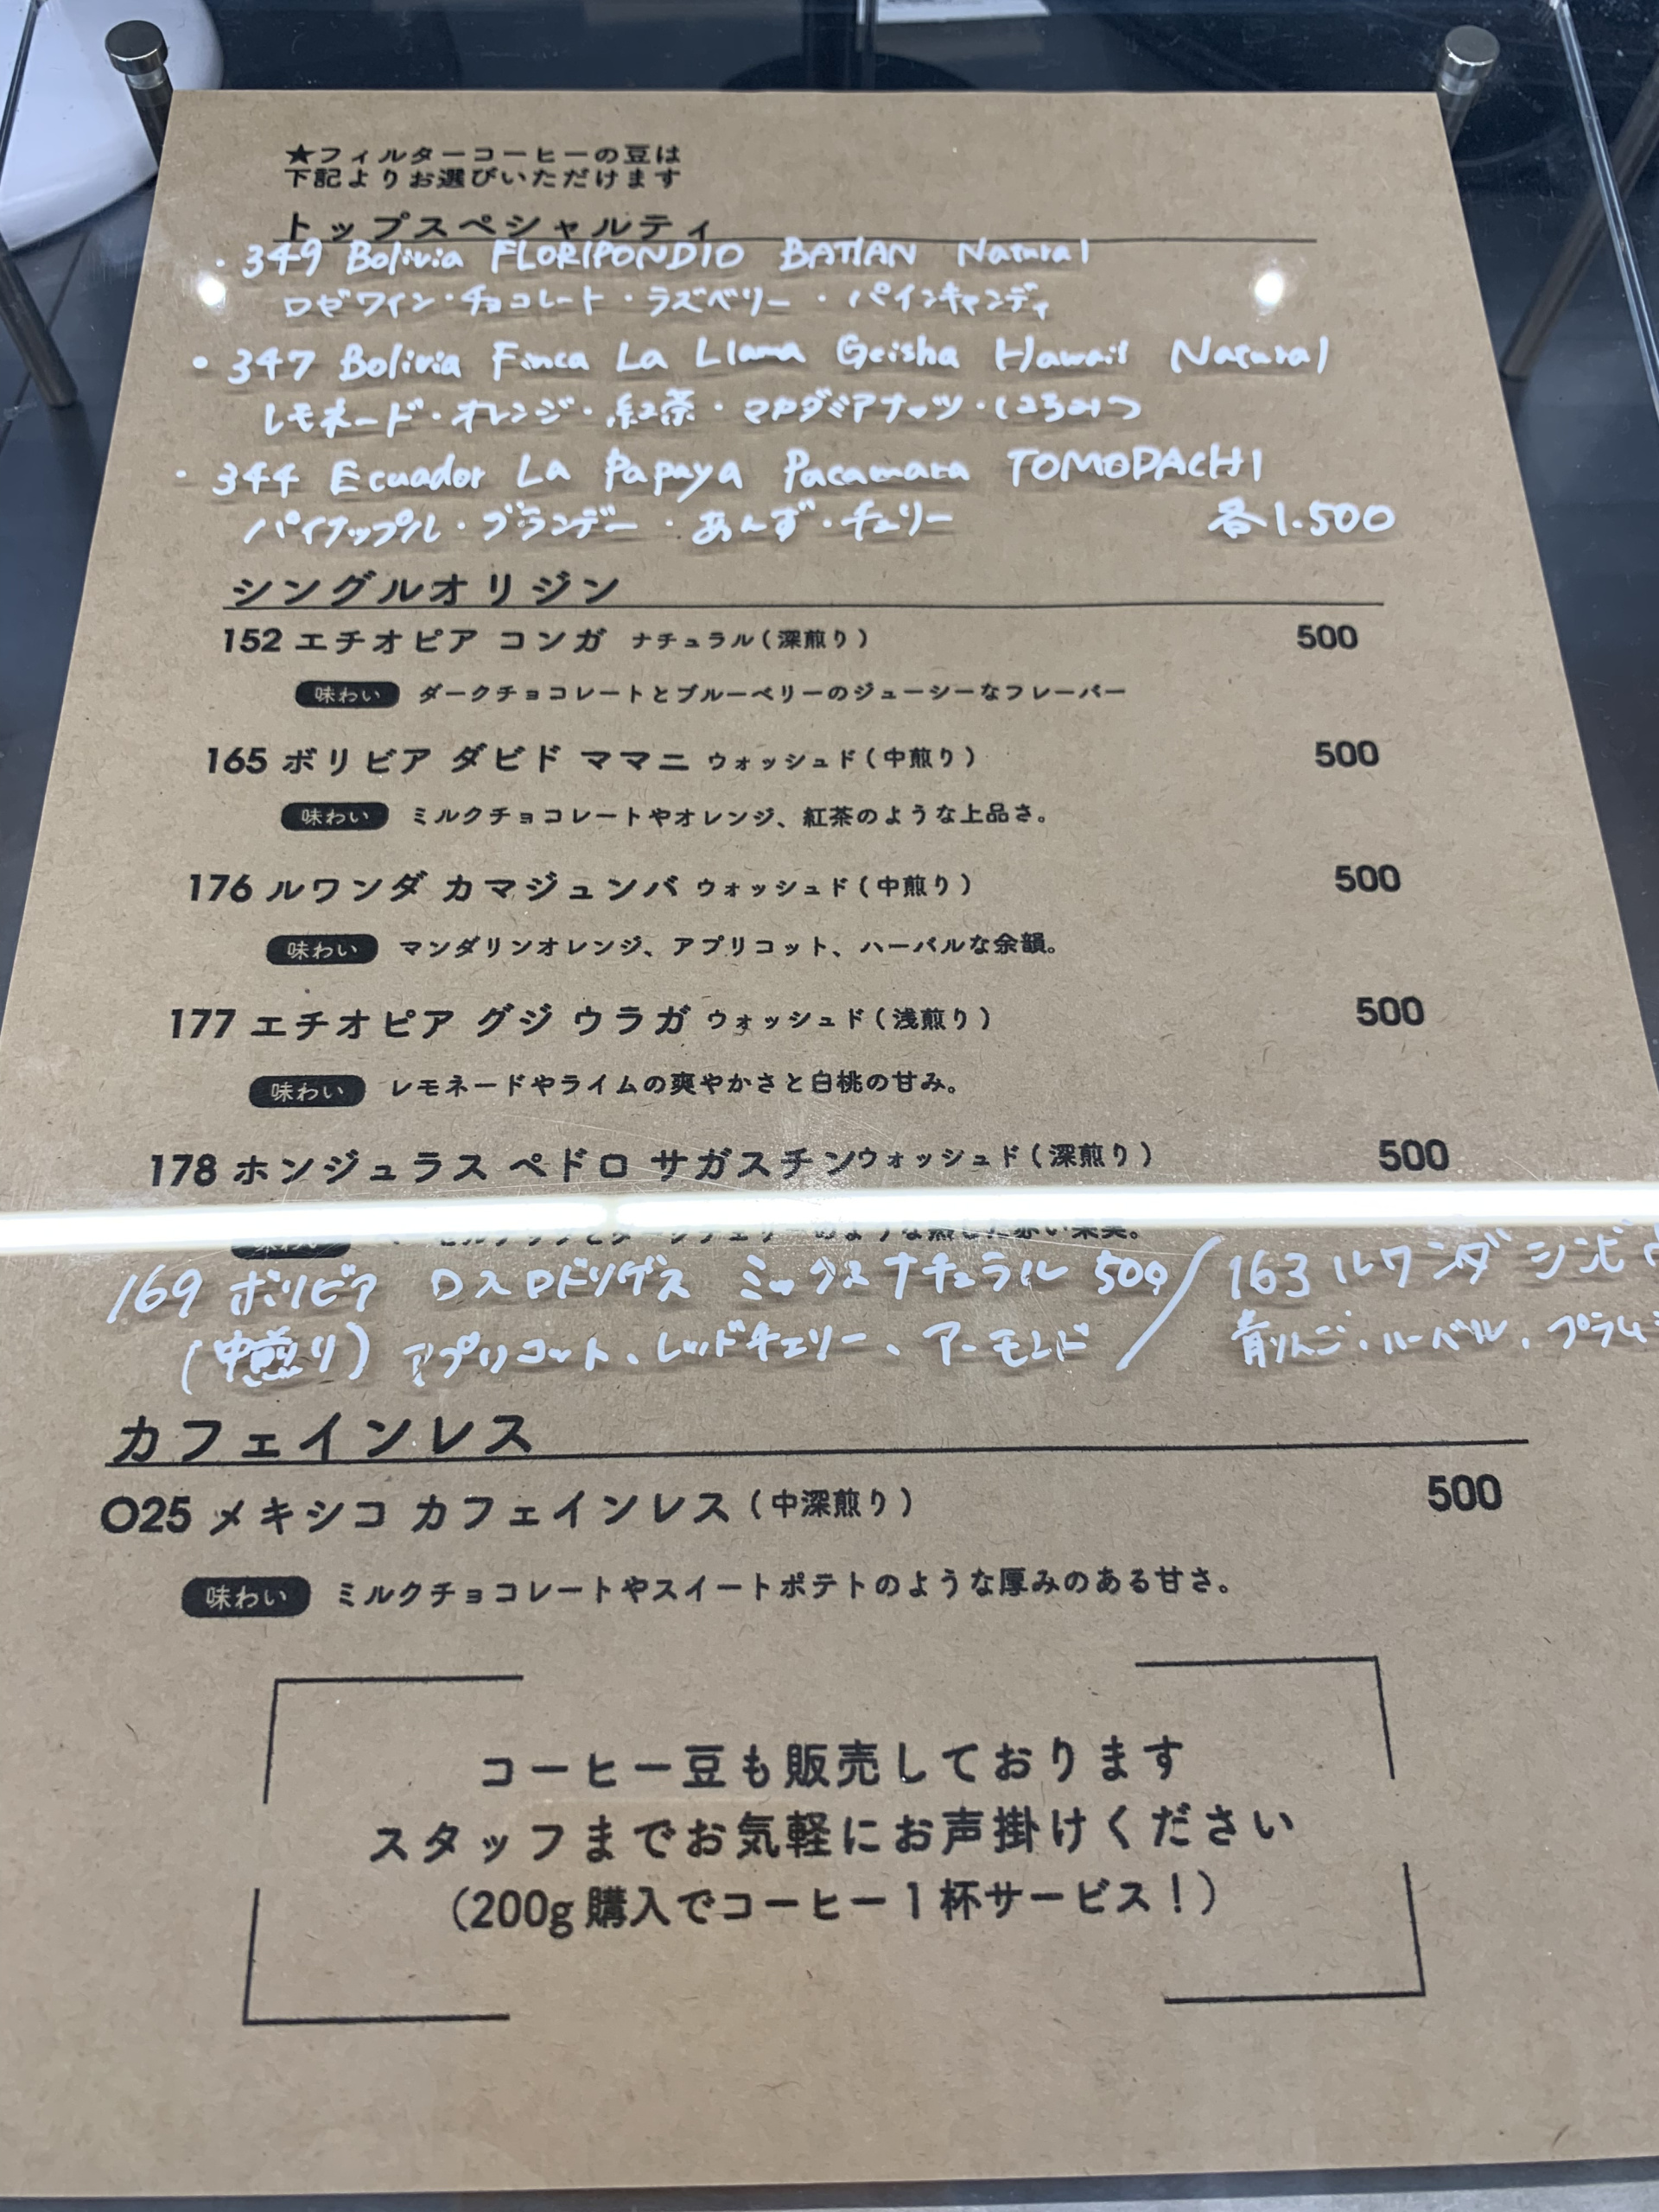 ★フィルターコーヒーの豆は
下記よりお選びいただけます
トップスペシャルティ
・349 Bolivia FLORIPONDIO BATIAN Natural
ロゼワイン・チョコレート・ラズベリー・パインキャンディ
・347 Bolivia Finca La Llama Geisha Hawaii Natural
レモネード・オレンジ・紅茶・マカダミアナッツ・はちみつ
・344 Ecuador La Papaya Pacamara TOMODACHI
パイナップル・ブランデー・あんず・チェリー 各1.500
シングルオリジン
152 エチオピア コンガ ナチュラル(深煎り) 500
味わい ダークチョコレートとブルーベリーのジューシーなフレーバー
165 ボリビア ダビド ママニ ウォッシュド(中煎り) 500
味わい ミルクチョコレートやオレンジ、紅茶のような上品さ。
176 ルワンダ カマジュンバ ウォッシュド(中煎り) 500
味わい マンダリンオレンジ、アプリコット、ハーバルな余韻。
177 エチオピア グジ ウラガ ウォッシュド(浅煎り) 500
味わい レモネードやライムの爽やかさと白桃の甘み。
178 ホンジュラス ペドロ サガスチン ウォッシュド(深煎り) 500
味わい のような熟した赤い果実。
169 ボリビア ロス ロドリゲス ミックスナチュラル 500 / 163 ルワンダ シンビ
(中煎り) アプリコット、レッドチェリー、アーモンド / 青りんご・ハーバル、プラム
カフェインレス
O25 メキシコ カフェインレス(中深煎り) 500
味わい ミルクチョコレートやスイートポテトのような厚みのある甘さ。
コーヒー豆も販売しております
スタッフまでお気軽にお声掛けください
(200g 購入でコーヒー1杯サービス!)